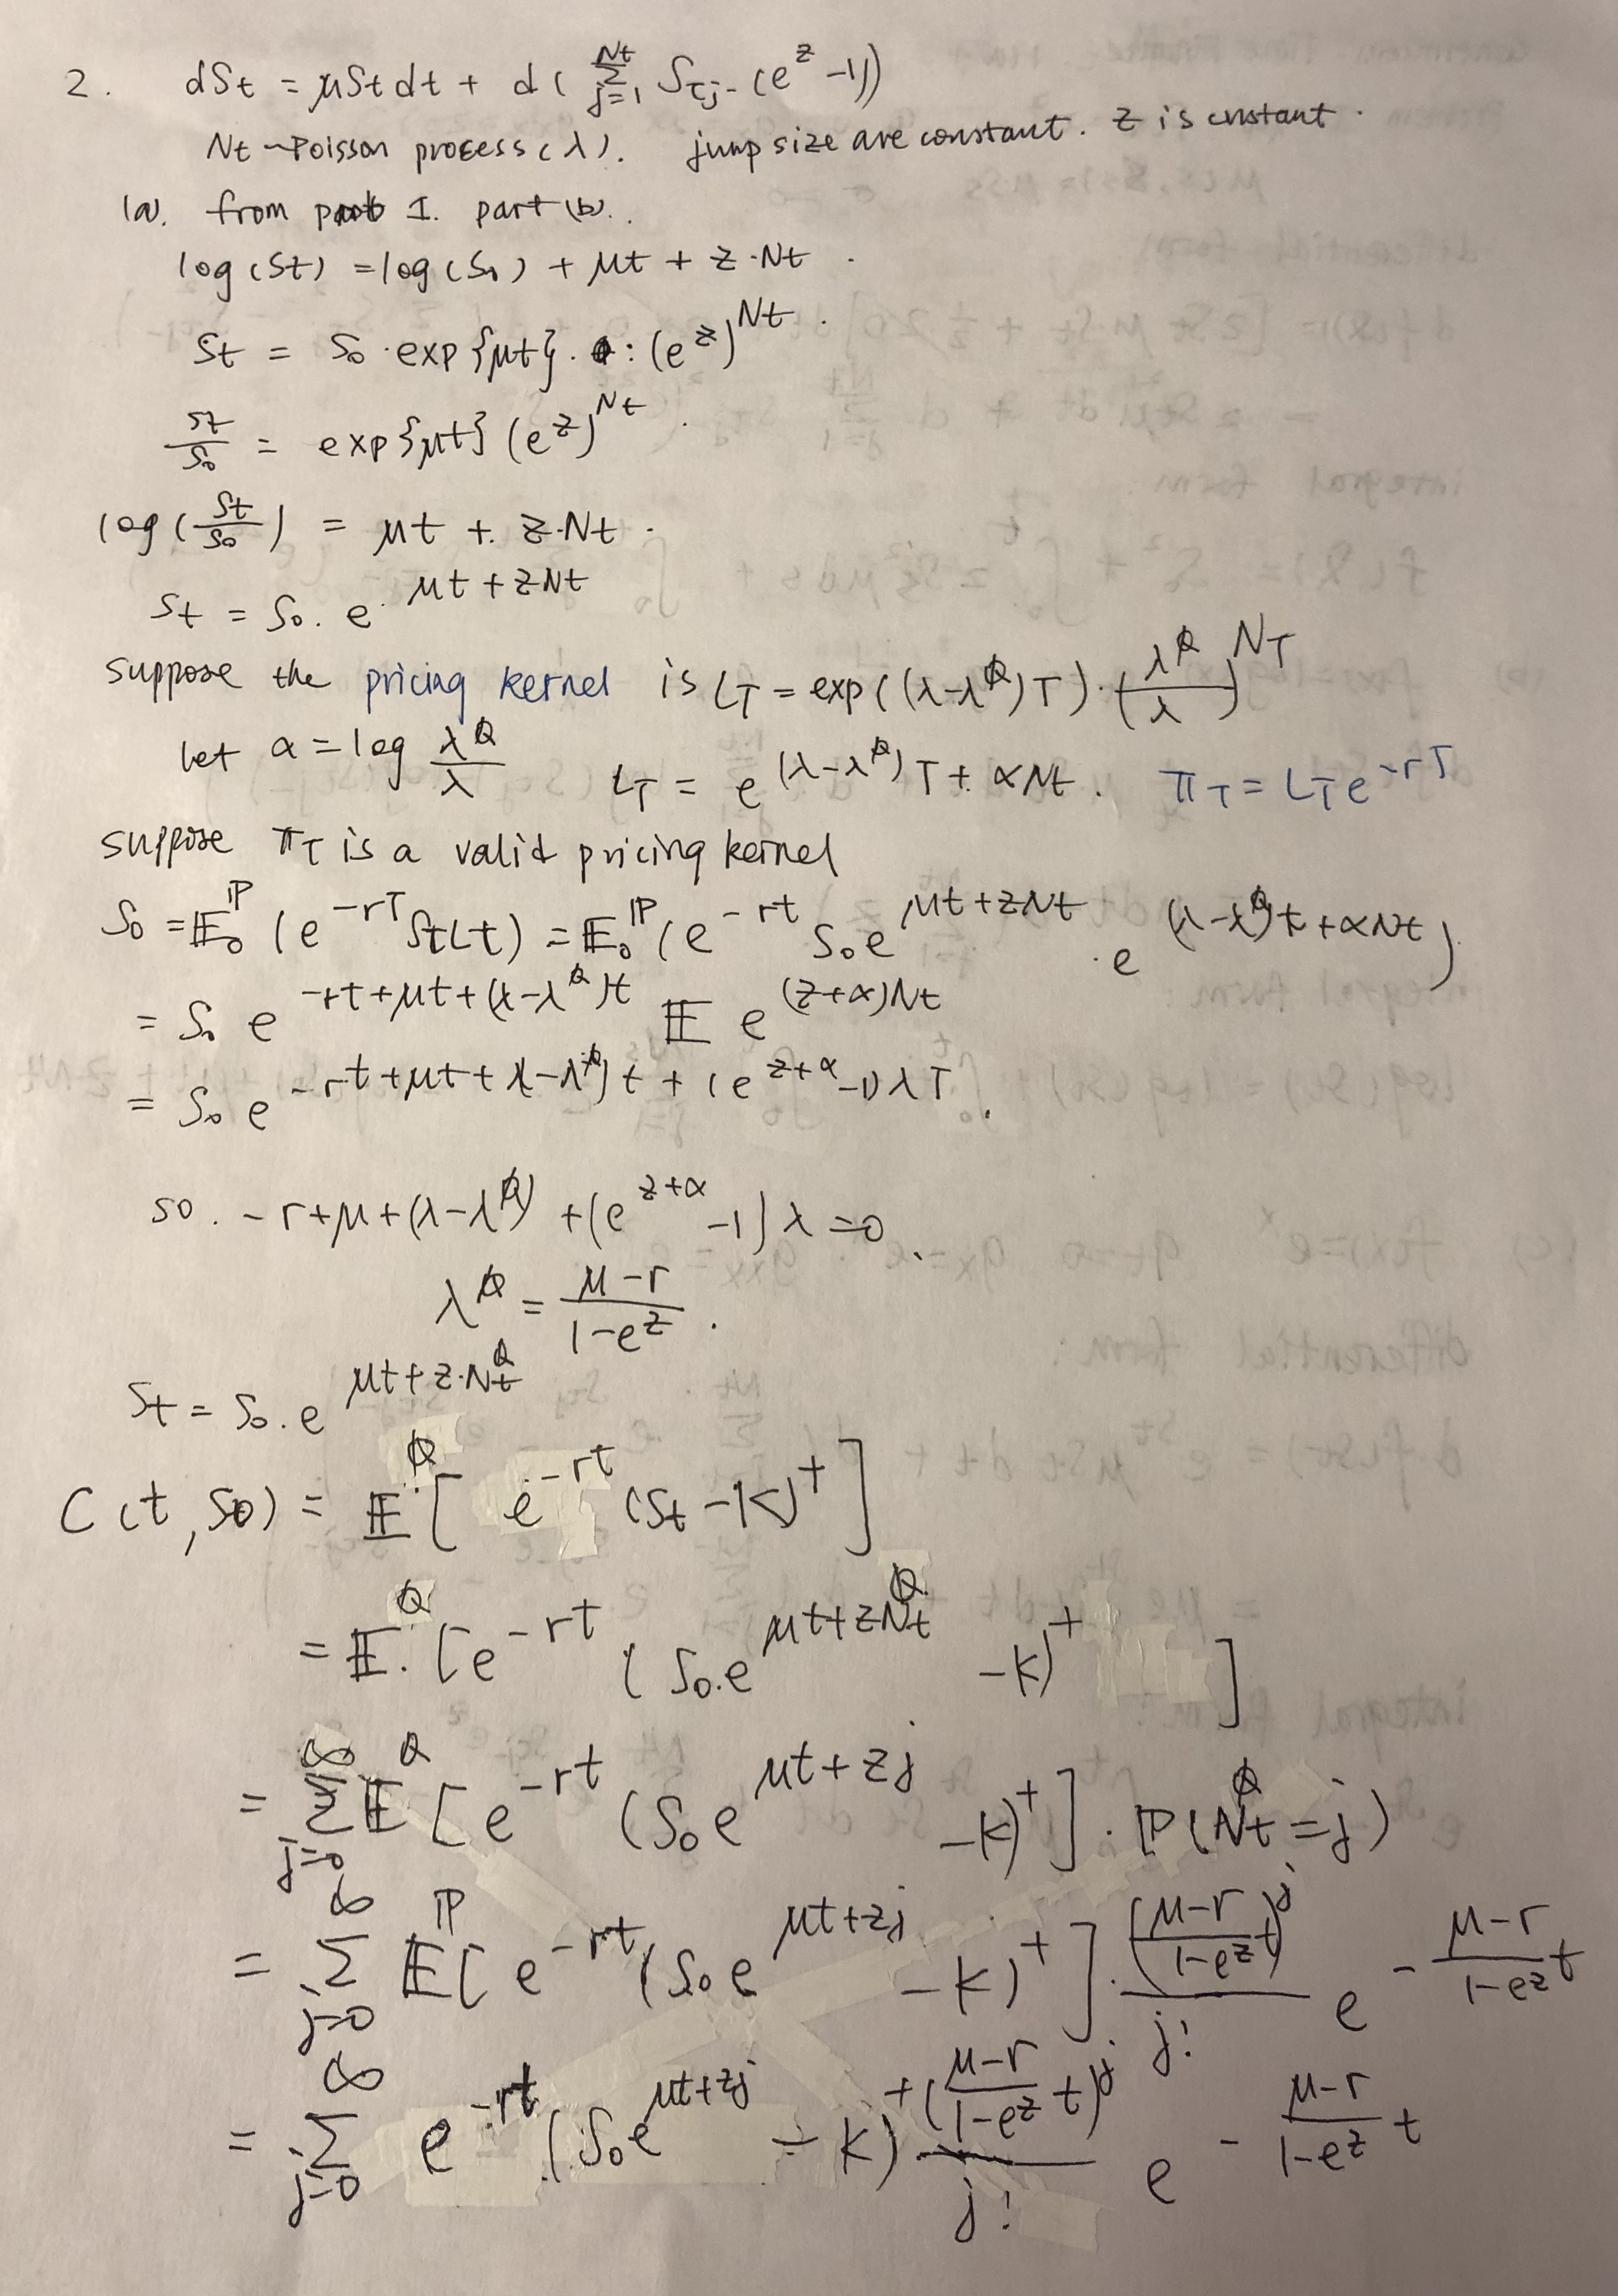 2. dSt = μSt dt + d( Σ_{j=1}^{Nt} S_{τj-} (e^z -1))
Nt ~ Poisson process (λ). jump size are constant. z is constant.
(a). from prob 1. part (b).
log(St) = log(S0) + μt + z·Nt.
St = S0·exp{μt}·(e^z)^{Nt}.
St/S0 = exp{μt} (e^z)^{Nt}.
log(St/S0) = μt + z·Nt.
St = S0.e^{μt+zNt}
suppose the pricing kernel is LT = exp((λ-λ^Q)T)·(λ^Q/λ)^{NT}
let α = log λ^Q/λ LT = e^{(λ-λ^Q)T+αNt}. πT = LT e^{-rT}
suppose πT is a valid pricing kernel
S0 = 𝔼_0^ℙ (e^{-rT} St Lt) = 𝔼_0^ℙ (e^{-rt} S0 e^{μt+zNt} ·e^{(λ-λ^Q)t+αNt})
= S0 e^{-rt+μt+(λ-λ^Q)t} 𝔼 e^{(z+α)Nt}
= S0 e^{-rt+μt+λ-λ^Q)t+(e^{z+α}-1)λT}.
so. -r+μ+(λ-λ^Q)+(e^{z+α}-1)λ=0.
λ^Q = μ-r/1-e^z.
St = S0.e^{μt+z·Nt^Q}
C(t,S0) = 𝔼^Q[ e^{-rt} (St-K)^+ ]
= 𝔼^Q.[e^{-rt} (S0.e^{μt+zNt^Q} -K)^+ ]
= Σ_{j=0}^∞ 𝔼^Q [e^{-rt} (S0e^{μt+zj} -K)^+]·ℙ(Nt^Q=j)
= Σ_{j=0}^∞ 𝔼^ℙ[e^{-rt}(S0e^{μt+zj} -K)^+]·(μ-r/1-e^z t)^j/j! e^{-μ-r/1-e^z t}
= Σ_{j=0}^∞ e^{-rt} (S0e^{μt+zj} -K)^+ (μ-r/1-e^z t)^j/j! e^{-μ-r/1-e^z t}